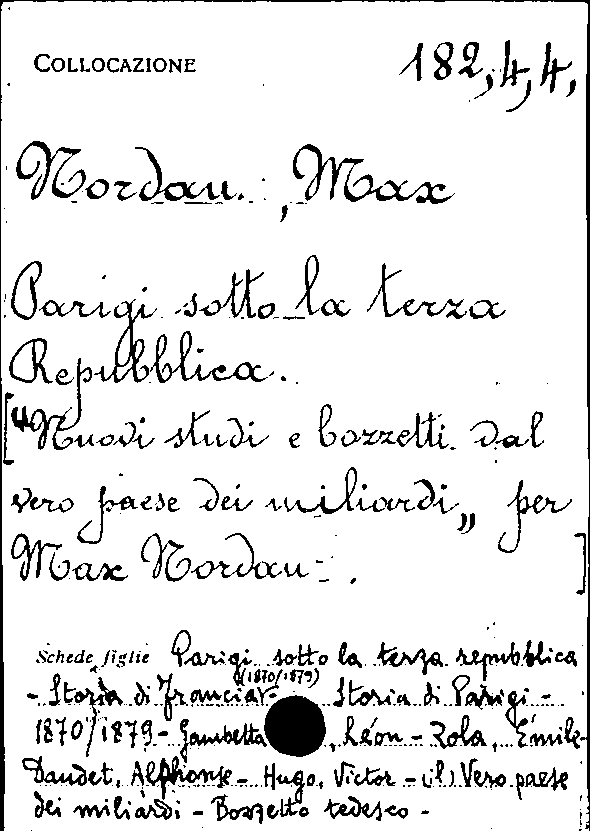 COLLOCAZIONE 182,4,4,
Nordau. , Max
Parigi sotto la terza
Repubblica.
["Nuovi studi e bozzetti dal
vero paese dei miliardi„ per
Max Nordau - . ]
Schede figlie Parigi sotto la terza repubblica
(1870/1879)
- Storia di Francia - Storia di Parigi -
1870/1879 - Gambetta, Léon - Zola, Émile -
Daudet, Alphonse - Hugo, Victor - (il) Vero paese
dei miliardi - Bozzetto tedesco -